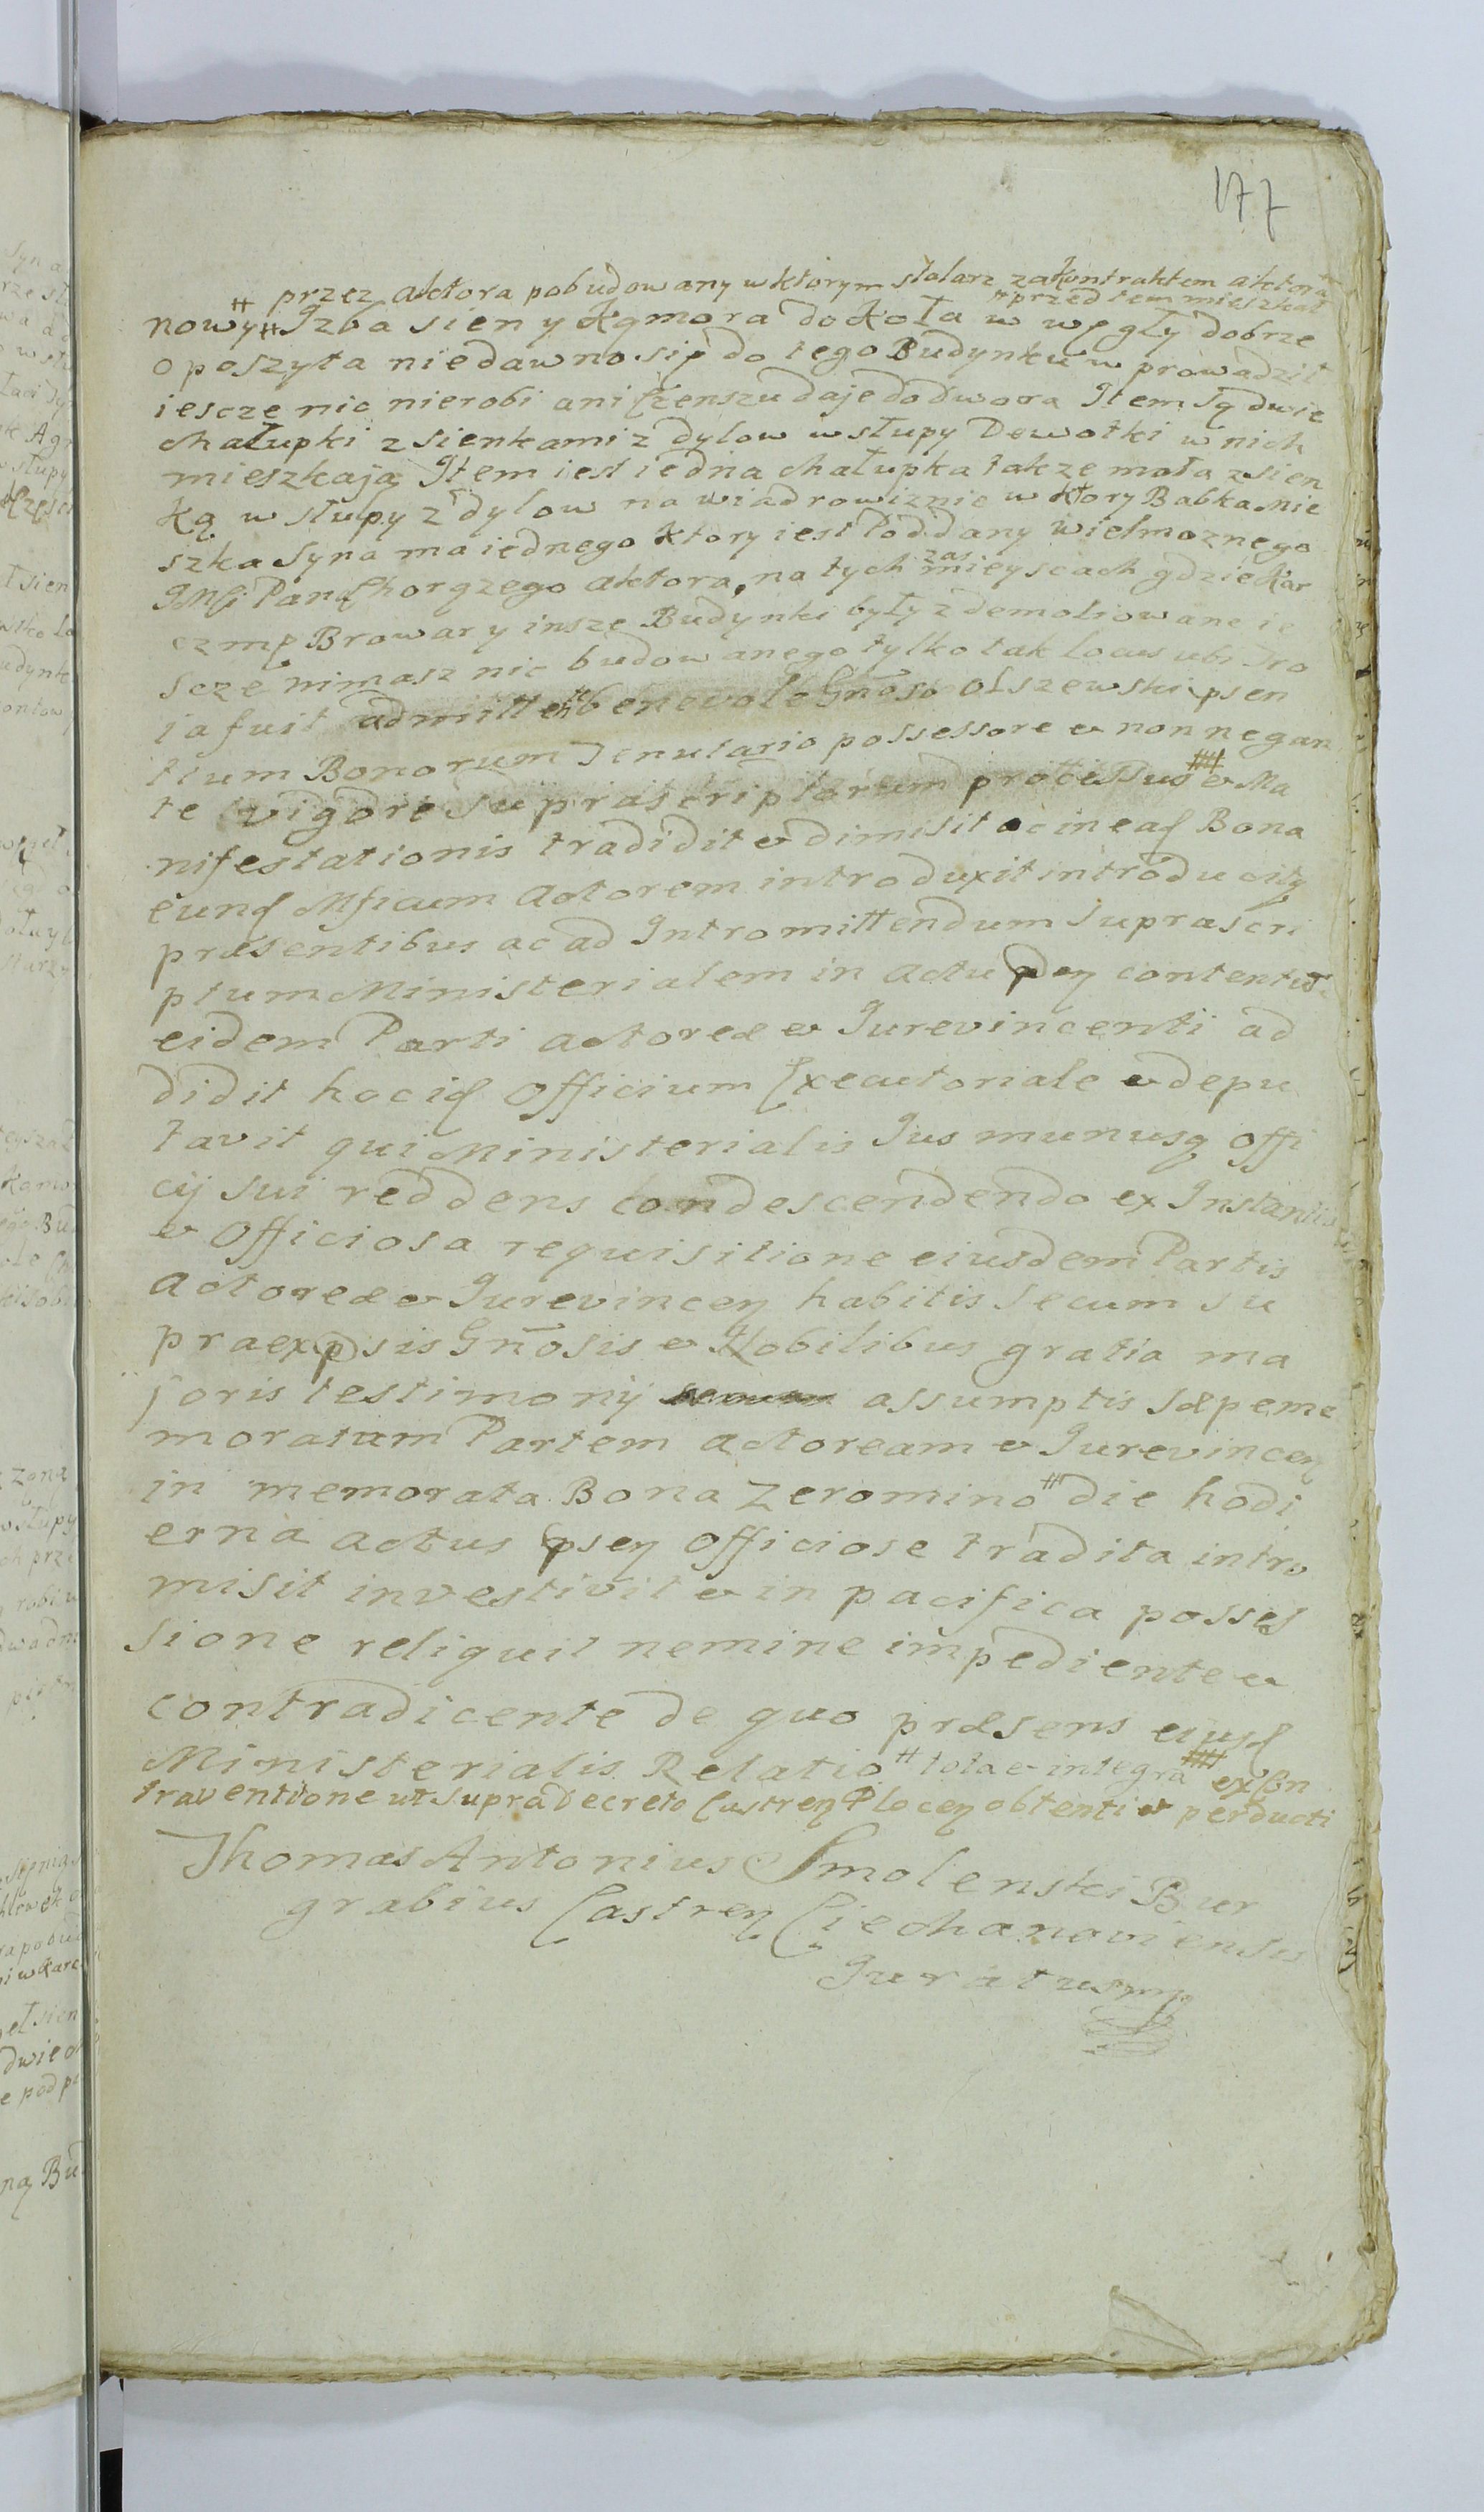 177
# przez aktora pobudowany w ktorym stolarz za kontraktem aktora
# przedtem mieszkał
nowy # Izba sien y kąmora do koła w węgły dobrze
oposzyta niedawno się do tego Budynku w prowadził
iescze nic nierobi ani Czenszu daje do dwora Item są dwie
chałupki z sienkami z dylow w słupy Dewotki w nich
mieszkają Item iest iedna chałupka takze mała z sien
ką w słupy z dylow na wiadrowiznie w ktory Babka Mie
szka Syna ma iednego ktory iest Poddany wielmoznego
JMSi Pana Chorązego aktora, na tych zas mieyscach gdzie Kar
czmę Browar y insze Budynki były zdemoliowane ie
scze nimasz nic budowanego tylko tak locus ubi Tro
ia fuit admittente benevole Gnoso Olszewski psen
tium Bonorum Tenutario possessore & non negan
te vigore suprascriptorum processus ## & Ma
nifestationis tradidit & dimisit ac in ead Bona
eund Mficum Actorem introduxit introducitq
præsentibus ac ad Intromittendum suprascri
ptum Ministerialem in actu pnn contentum
eidem Parti actoreæ & Jurevincenti ad
didit hoc id Officium Executoriale & depu
tavit qui Ministerialis Jus munusq offi
cij sui reddens condescendendo ex Instantia
& Officiosa requisitione eiusdem Partis
actoreæ & Jurevincen habitis secum su
praexpsis Gnosis & Nobilibus gratia ma
joris testimonij assumptis sæpeme
moratam Partem actoream & Jurevincen
in memorata Bona Zeromino # die hodi
erna actus psen Officiose tradita intro
misit investivit & in pacifica posses
sione reliquit nemine impediente &
contradicente de quo præsens eiusd
Ministerialis Relatio # tota & integra ## ex Con
traventione ut supra Decreto Castren Plocen obtenti & perducti
Thomas Antonius Smolenski Bur
grabius Castren Ciechanoviensis
Juratus mp